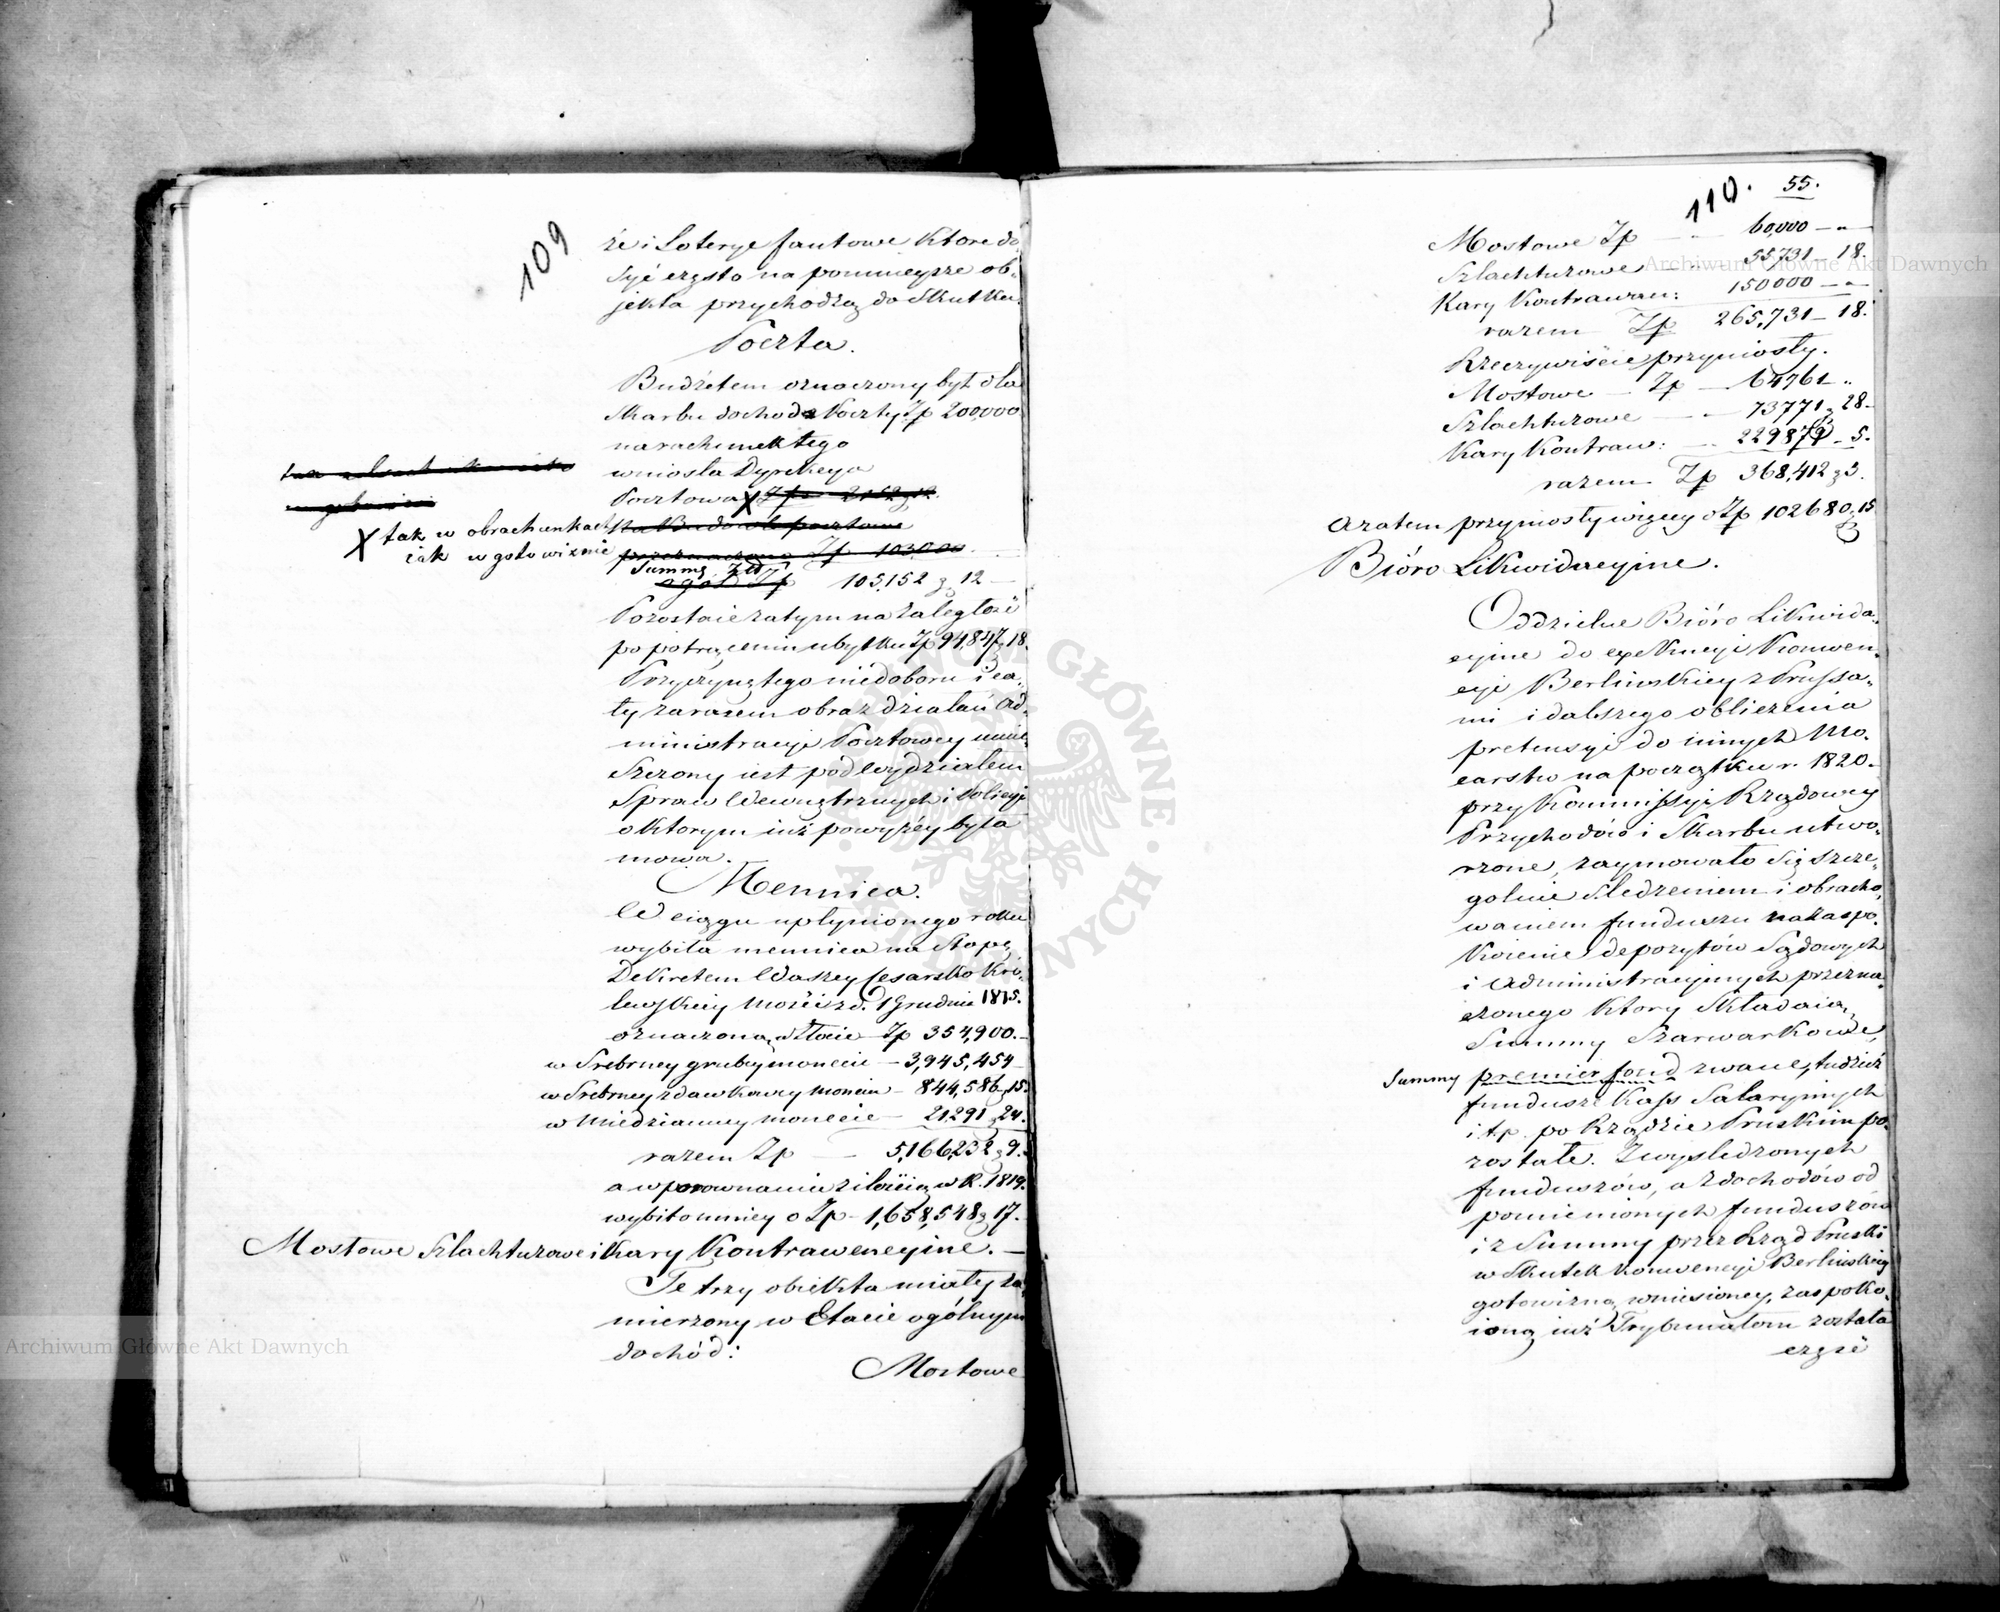 109
że i Loterye fantowe które do„
syć często na pomnieysze ob„
jekta przychodzą do Skutku.
Poczta.
Budżetem oznaczony był dla
Skarbu dochód z Poczty Zp 200,000
na rachunek tego
wniosła Dyrekcya
Pocztowa X Zp 2152 g 12.
na Budowle pocztowe
przeznaczono Zp 103,000
X tak w obrachunkach
iak w gotowiznie
Summę Złł
ogół Zp 105,152 g 12 —
Pozostaie zatym na zaległość
po potrąceniu ubytku Zp 94,847 g 18.
Przyczynę tego niedoboru i ca„
ły zarazem obraz działań Ad„
ministracyi Pocztowey umie„
szczony iest pod Wydziałem
Spraw Wewnętrznych i Policyi
o którym iuż powyżéy była
mowa.
Mennica.
W ciągu upłynionego roku
wybiła mennica na Stopę
Dekretem Waszey Cesarsko Kró„
lewskiey Mości z d. 1 Grudnia 1815.
oznaczoną w Złocie Zp 354,900.—
w Srebrney grubey monecie — 3,945,454
w Srebrney zdawkowey monecie — 844,586 g 15.
w Miedzianey monecie — 21,291 g 24.
razem Zp — 5,166,232 g 9.
a w porownaniu z ilością w R. 1819.
wybito mniey o Zp — 1,658,548 g 17.
Mostowe Szlachtuzowe i Kary Kontrawencyine. —
Te trzy obiekta miały za„
mierzony w Etacie ogólnym
dochód:
Mostowe
110. 55.
Mostowe Zp — „ 60,000 — „
Szlachtuzowe — „ 55731 — 18.
Kary Kontrawen: 150000 — „
razem Zp 265,731 — 18.
Rzeczywiście przyniosły.
Mostowe — Zp — 64761 — „
Szlachtuzowe — „ 73771 g 28.
Kary Kontraw: — 229879 — 5.
razem — Zp 368,412 g 3.
a zatem przyniosły więcey o Zp 102680 g 15
Bióro Likwidacyine.
Oddzielne Bióro Likwida„
cyine do exekucyi Konwen„
cyi Berlińskiey z Prussa„
mi i dalszego obliczenia
pretensyi do innych Mo„
carstw na początku r. 1820.
przy Kommissyi Rządowey
Przychodów i Skarbu utwo„
rzone, zaymowało się szcze„
gólnie śledzeniem i obracho„
waniem funduszu na zaspo„
koienie depozytów Sądowych
i Administracyinych przezna„
czonego który składaią
Summy Szarwarkowe,
Summy premier fond zwane, tudzież
fundusze Kass Salaryinych
i t.p. po Rządzie Pruskim po„
zostałe. Z wyśledzonych
funduszów, a z dochodów od
pomienionych funduszów
i z Summy przez Rząd Pruski
w Skutek Konwencyi Berlińskiey
gotowizną wniesioney, zaspoko„
ioną iuż Trybunałom została
część
Archiwum Główne Akt Dawnych
Archiwum Główne Akt Dawnych